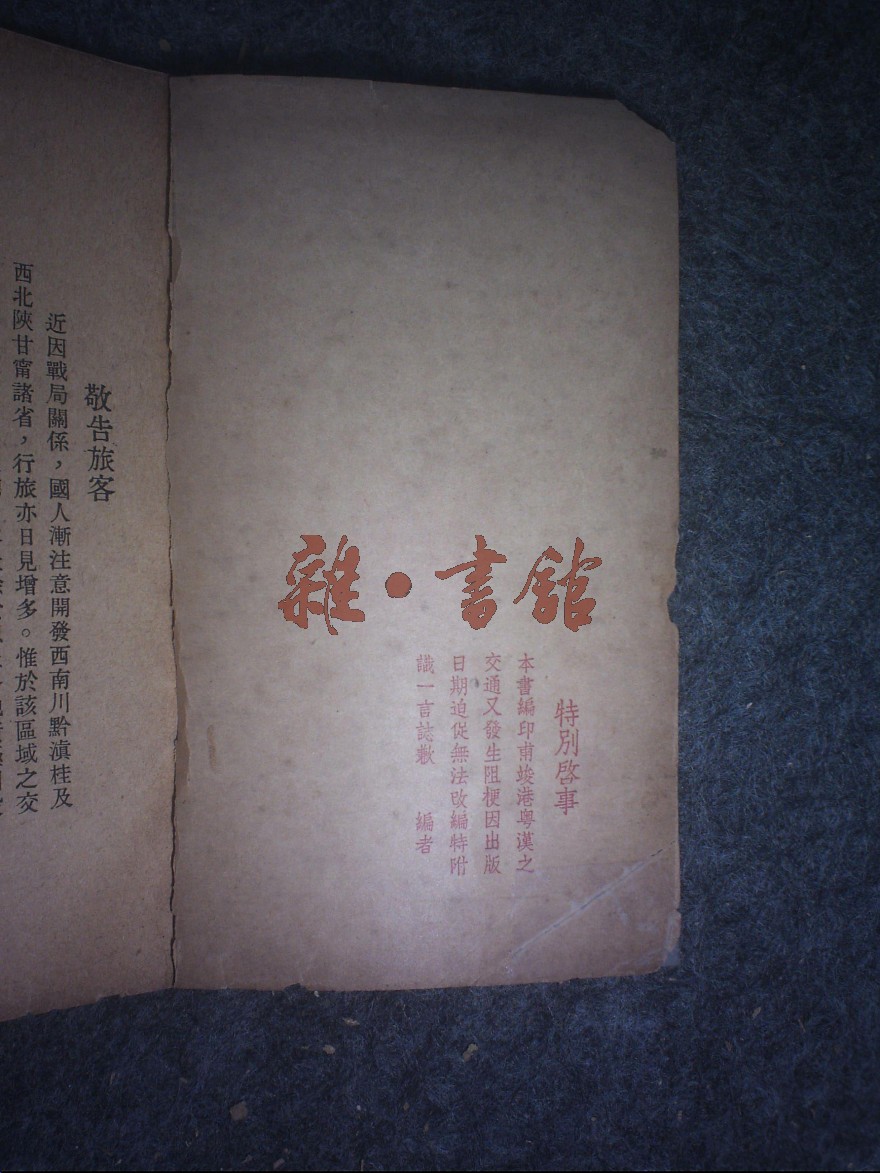 雜·書館
特別啓事
本書編印甫竣港粵漢之
交通又發生阻梗因出版
日期迫促無法改編特附
識一言誌歉 編者
敬告旅客
近因戰局關係，國人漸注意開發西南川黔滇桂及
西北陝甘甯諸省，行旅亦日見增多。惟於該區域之交